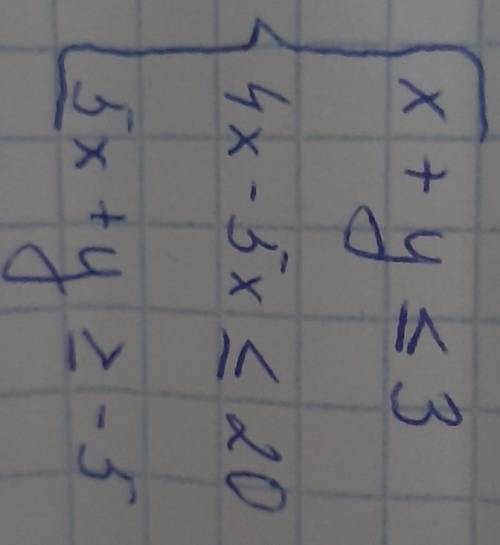 x + y ≤ 3
4x - 5x ≤ 20
5x + y ≥ -5